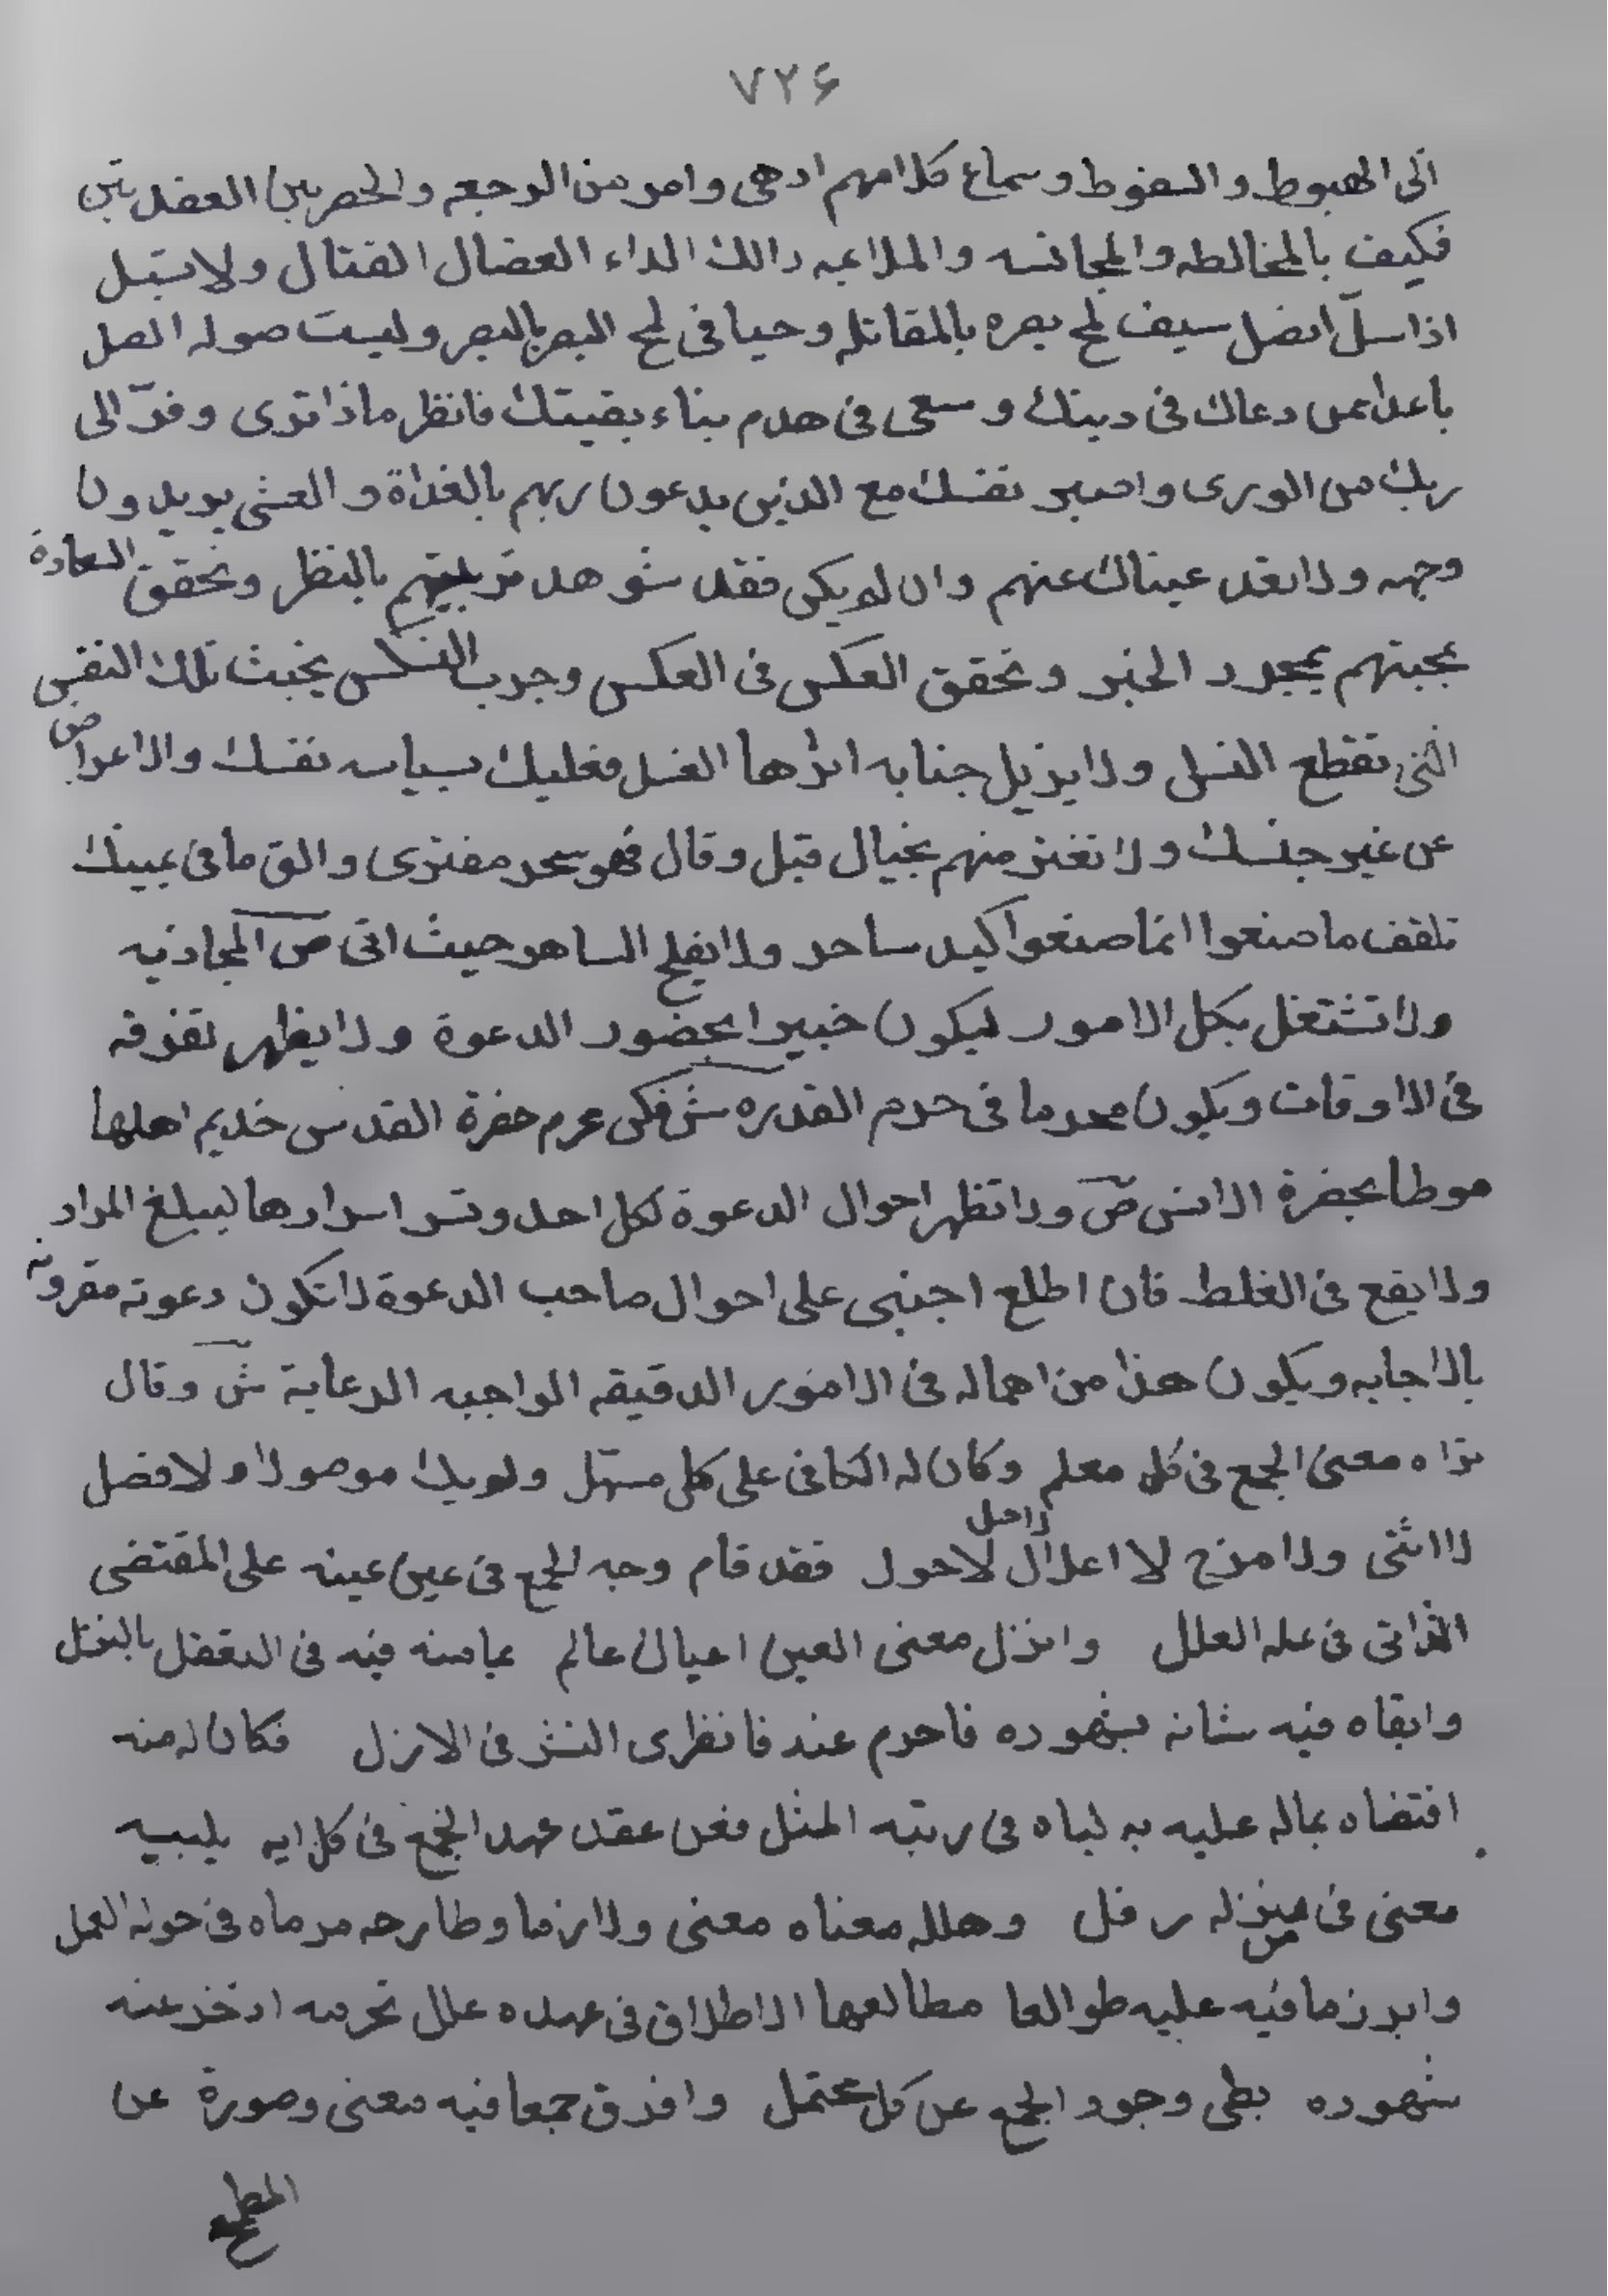 ٧٢۶
الى الهبوط والسقوط وسماع كلامهم ادهى وامر من الرجعه والحصر بين العقدتين
فكيف بالمخالطه والمجانسه والملاعبه ذالك الداء العضال القتال ولا ستبل
اذا سلّ انصل سيف لمح بصره بالمقاتله وحيا فى لمح البصر بالبصر وليست صوله الصل
باعدا عمن دعاك فى دينك وسعى فى هدم بناء بقيتك فانظر ماذا ترى وفرّ الى
ربك من الورى واصبر نفسك مع الذين يدعون ربهم بالغداة والعشى يريدون
وجهه ولا تعد عيناك عنهم وان لم يكن فقد شوهد تربيتهم بالنظر وتحقق السعادة
بمحبتهم بمجرد الخبر وتحقق العكس فى العكس وجرب النكس بخبث تلك النفس
التى تقطع النسل ولا يزيل جنابه اثرها الغسل فعليك بسياسه نفسك والاعراض
عن غير جنسك ولا تغتر منهم بخيال قيل وقال فهو سحر مفترى والق ما فى يمينك
تلقف ما صنعوا انما صنعوا كيد ساحر ولا يفلح الساحر حيث اتى ص المجاذبه
ولا تشتغل بكل الامور ليكون خبيرا بحضور الدعوة ولا يظهر تفرقه
فى الاوقات ويكون محرما فى حرم القدره ش فكن محرم حضرة القدس خديم اهلها
موطا بحضرة الانس ص ولا تظهر احوال الدعوة لكل احد وتسر اسرارها ليبلغ المراد
ولا يقع فى الغلط فان اطلع اجنبى على احوال صاحب الدعوة لا تكون دعوته مقرونه
بالاجابه ويكون هذا من اهماله فى الامور الدقيقه الواجبه الرعاية ش وقال
تراه معنى الجمع فى كل معلم وكان له الكافى على كل مستهل ولم يك موصولا ولا فصل
لا انثى ولا مزج لا اعلال لاحول لاحل فقد قام وجه الجمع فى عين عينه على المقتضى
الذاتى فى عله العلل وانزل معنى العين اعيان عالم بما منه فيه فى التعقل بالنقل
وابقاه فيه شانه بشهوده فاحرم عند فانظرى النشر فى الازل فكان له منه
اقتضاه بماله عليه به لباه فى رتبه المثل فعن عقد عهد الجمع فى كل ايه يلبيه
معنى فى منزله ر فل من وهلله معناه معنى ولازما وطارحه مرماه فى حوله العمل
وابرز ما فيه عليه طوالعا مطالعها الاطلاق فى عهده علل تحرمه اذ خر عنه
شهوده بطى وجود الجمع عن كل محتمل وافرق جمعا فيه معنى وصورة عن
المطمح